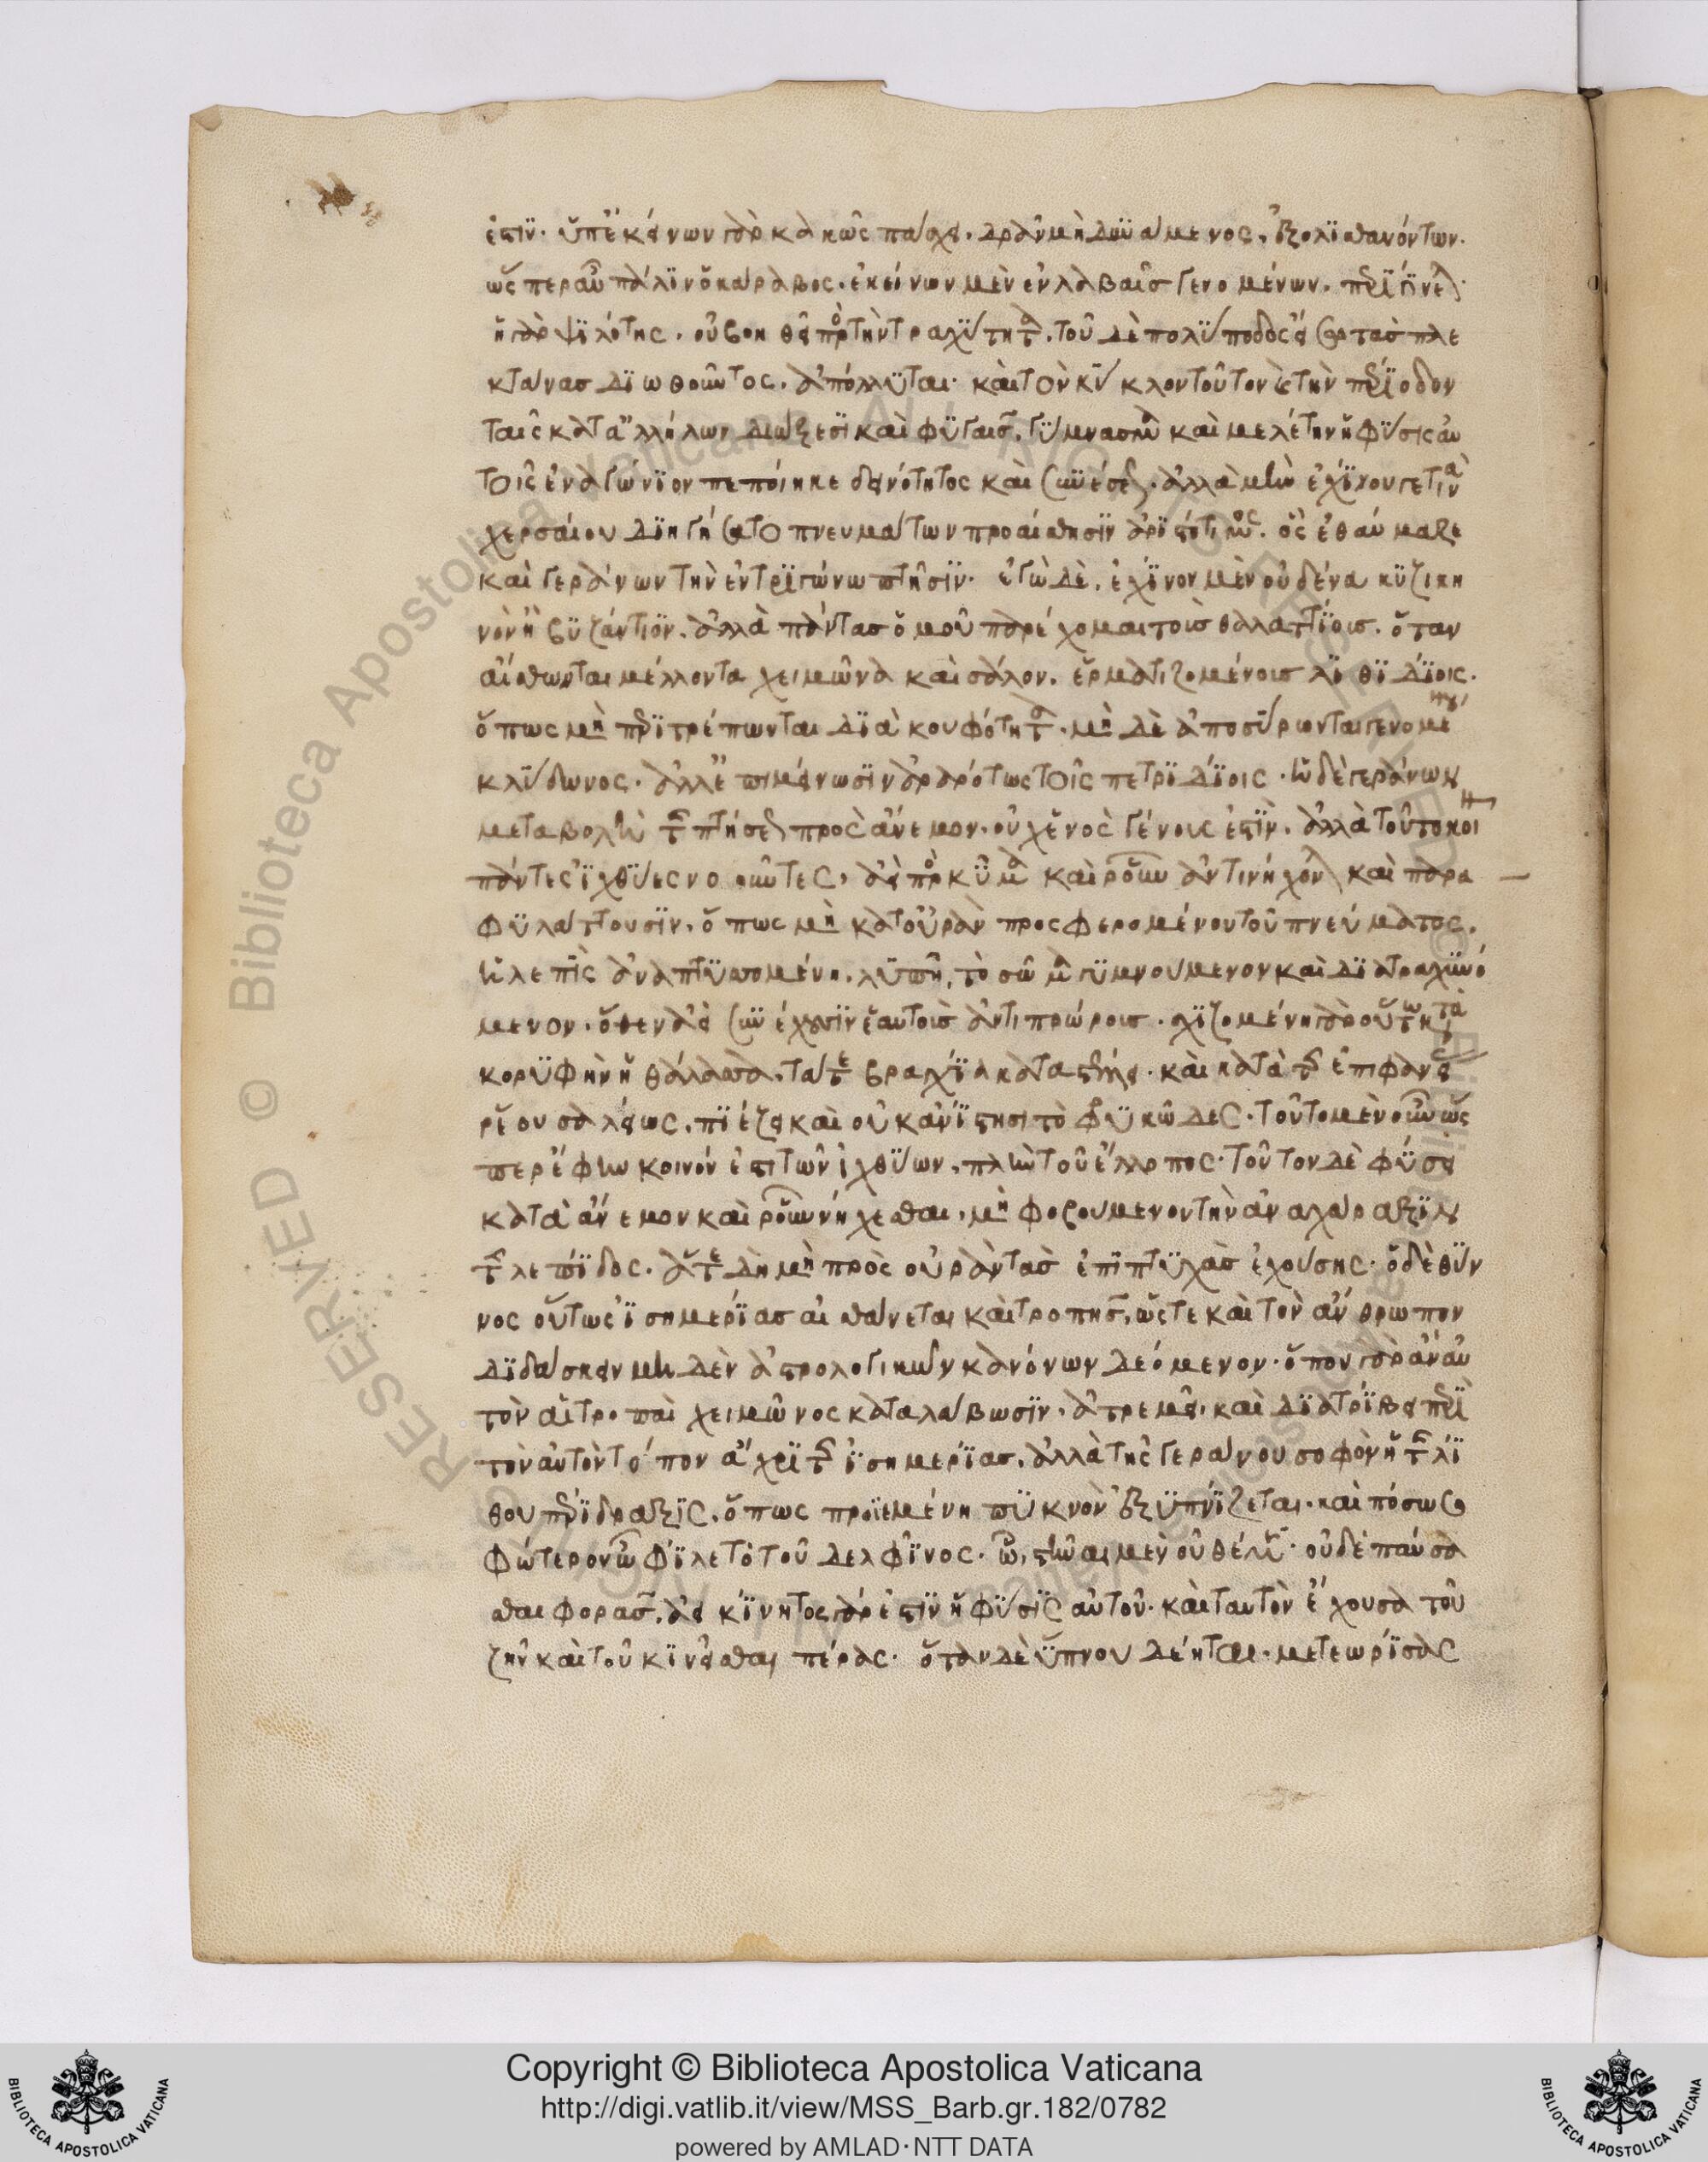 ἐστιν. ὑπ' ἐκείνων γὰρ κακῶς πάσχει, δρᾶν μὴ δυνάμενος, ἐξολισθανόντων.
ὥσπερ αὖ πάλιν ὁ κάραβος. ἐκείνων μὲν ἐν λαβαῖς γενομένων, περιγίνεται.
ἡ γὰρ ψιλότης, οὐ βοηθεῖ πρὸς τὴν τραχύτητα. τοῦ δὲ πολύποδος εἴσω τὰς πλε
κτάνας διωθοῦντος, ἀπόλλυται. καὶ τὸν κύκλον τοῦτον καὶ τὴν περίοδον
ταῖς κατ' ἀλλήλων διώξεσι καὶ φυγαῖς, γύμνασμα καὶ μελέτην ἡ φύσις αὐ
τοῖς ἐναγώνιον πεποίηκε δεινότητος καὶ συνέσεως. ἀλλὰ μὴν ἐχίνου γέ τινα
χερσαίου διηγήσατο πνευμάτων προαίσθησιν ἀριστότιμος. ὃς ἐθαύμαζε
καὶ γεράνων τὴν ἐν τριγώνω πτῆσιν. ἐγὼ δὲ, ἐχῖνον μὲν οὐδένα κυζικη
νὸν ἢ βυζάντιον, ἀλλὰ πάντας ὁμοῦ παρέχομαι τοὺς θαλαττίους. ὅταν
αἴσθωνται μέλλοντα χειμῶνα καὶ σάλον, ἑρματιζομένους λιθιδίοις.
ὅπως μὴ περιτρέπωνται διὰ κουφότητα. μὴ δὲ ἀποσύρωνται γενομένου
κλύδωνος. ἀλλ' ἐπιμένωσιν ἀραρότως τοῖς πετριδίοις. ἡ δὲ γεράνων
μεταβολὴ τῆς πτήσεως πρὸς ἄνεμον, οὐχ ἑνὸς γένους ἐστίν. ἀλλὰ τοῦτο κοινῆ
πάντες ἰχθύες νοοῦντες, ἀεὶ πρὸς κῦμα καὶ ῥοῦν ἀντινήχονται καὶ παρα
φυλάττουσιν, ὅπως μὴ κατ' οὐρὰν προσφερομένου τοῦ πνεύματος,
ἡ λεπὶς ἀναπτυσσομένη, λυπῆ, τὸ σῶμα γυμνούμενον καὶ διατραχυνό
μενον. ὅθεν ἀεὶ συνέχουσιν ἑαυτοὺς ἀντιπρώρους. σχιζομένη γὰρ οὕτω κατὰ
κορυφὴν ἡ θάλασσα, τά τε βράγχια καταστέλλει. καὶ κατὰ τῆς ἐπιφανείας
ῥέουσα λείως, πιέζει καὶ οὐκ ἀνίστησι τὸ φυκῶδες. τοῦτο μὲν οὖν ὥς
περ ἔφην κοινόν ἐστι τῶν ἰχθύων, πλὴν τοῦ ἔλλοπος. τοῦτον δὲ φύσει
κατὰ ἄνεμον καὶ ῥοῦν νήχεσθαι, μὴ φοβούμενον τὴν ἀναχάραξιν
τῆς λεπίδος. ἅτε δὴ μὴ πρὸς οὐρὰν τὰς ἐπιπτυχὰς ἐχούσης. ὁ δὲ θύν
νος οὕτως ἰσημερίας αἰσθάνεται καὶ τροπῆς, ὥστε καὶ τὸν ἄνθρωπον
διδάσκειν μηδὲν ἀστρολογικῶν κανόνων δεόμενον. ὅπου γὰρ ἂν αὐ
τὸν αἱ τροπαὶ χειμῶνος καταλάβωσιν, ἀτρεμεῖ. καὶ διατρίβει περὶ
τὸν αὐτὸν τόπον ἄχρι τῆς ἰσημερίας. ἀλλὰ τῆς γεράνου σοφὸν ἡ τῆς λί
θου περίδραξις, ὅπως προϊεμένη πυκνὸν ἐξυπνίζεται. καὶ πόσω σο
φώτερον ὦ φίλε τὸ τοῦ δελφῖνος. ὧ, στῆναι μὲν οὐ θέμις. οὐδὲ παύσα
σθαι φορᾶς, ἀεικίνητος γάρ ἐστιν ἡ φύσις αὐτοῦ. καὶ ταυτὸν ἔχουσα τοῦ
ζῆν καὶ τοῦ κινεῖσθαι πέρας. ὅταν δὲ ὕπνου δέηται. μετεωρίσας
Copyright © Biblioteca Apostolica Vaticana
http://digi.vatlib.it/view/MSS_Barb.gr.182/0782
powered by AMLAD·NTT DATA